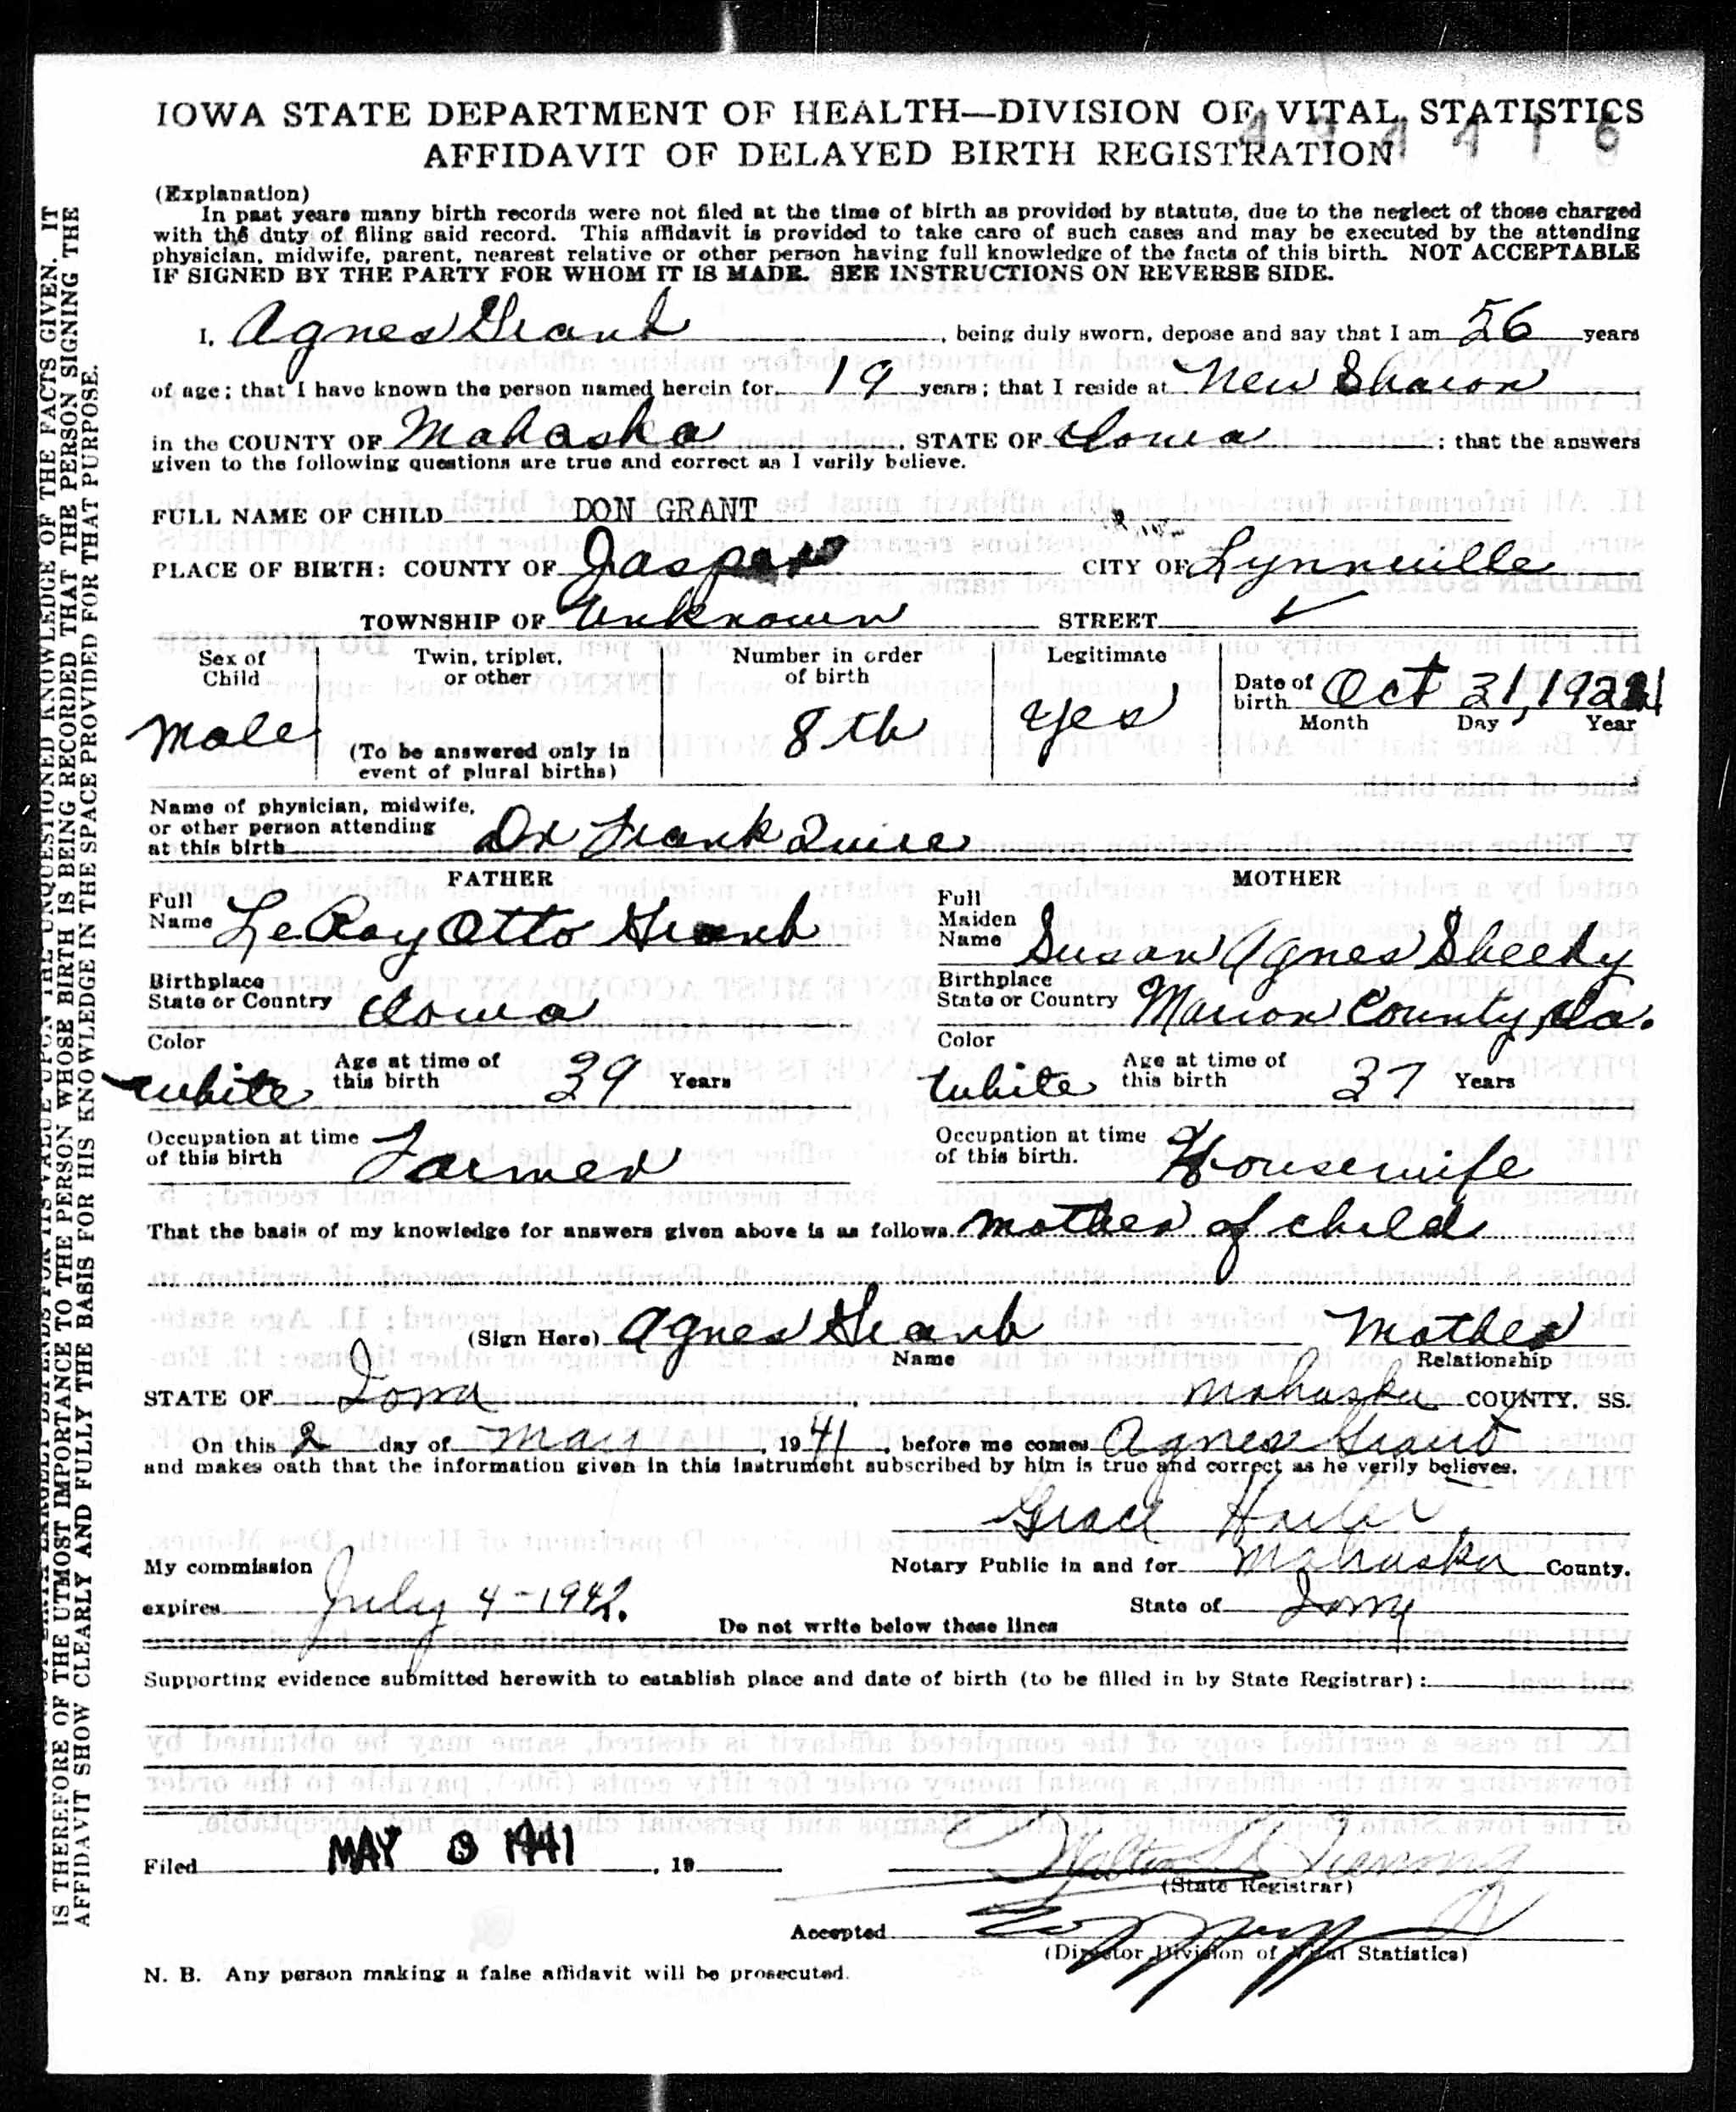 IOWA STATE DEPARTMENT OF HEALTH—DIVISION OF VITAL STATISTICS
AFFIDAVIT OF DELAYED BIRTH REGISTRATION
(Explanation)
In past years many birth records were not filed at the time of birth as provided by statute, due to the neglect of those charged
with the duty of filing said record. This affidavit is provided to take care of such cases and may be executed by the attending
physician, midwife, parent, nearest relative or other person having full knowledge of the facts of this birth. NOT ACCEPTABLE
IF SIGNED BY THE PARTY FOR WHOM IT IS MADE. SEE INSTRUCTIONS ON REVERSE SIDE.
I, Agnes Grant, being duly sworn, depose and say that I am 56 years
of age; that I have known the person named herein for 19 years; that I reside at New Sharon
in the COUNTY OF Mahaska, STATE OF Iowa: that the answers
given to the following questions are true and correct as I verily believe.
FULL NAME OF CHILD DON GRANT
PLACE OF BIRTH: COUNTY OF Jasper CITY OF Lynnville
TOWNSHIP OF Unknown STREET ✓
Sex of Child Male
Twin, triplet, or other (To be answered only in event of plural births)
Number in order of birth 8th
Legitimate Yes
Date of birth Oct 21, 1921
Month Day Year
Name of physician, midwife,
or other person attending
at this birth Dr Frank
FATHER MOTHER
Full Name LeRoy Otto Grant
Full Maiden Name Susan Agnes Sheehy
Birthplace State or Country Iowa
Birthplace State or Country Marion County, Ia.
Color White Age at time of this birth 39 Years
Color White Age at time of this birth 37 Years
Occupation at time of this birth Farmer
Occupation at time of this birth. Housewife
That the basis of my knowledge for answers given above is as follows. Mother of child
(Sign Here) Agnes Grant Mother
Name Relationship
STATE OF Iowa, Mahaska COUNTY, SS.
On this 2 day of May, 1941, before me comes Agnes Grant
and makes oath that the information given in this instrument subscribed by him is true and correct as he verily believes.
Grace
My commission Notary Public in and for Mahaska County.
expires July 4-1942. State of Iowa
Do not write below these lines
Supporting evidence submitted herewith to establish place and date of birth (to be filled in by State Registrar):
Filed MAY 3 1941, 19
Walter
(State Registrar)
Accepted
(Director Division of Vital Statistics)
N. B. Any person making a false affidavit will be prosecuted.
IS THEREFORE OF THE UTMOST IMPORTANCE TO THE PERSON WHOSE BIRTH IS BEING RECORDED THAT THE PERSON SIGNING THE
AFFIDAVIT SHOW CLEARLY AND FULLY THE BASIS FOR HIS KNOWLEDGE IN THE SPACE PROVIDED FOR THAT PURPOSE.